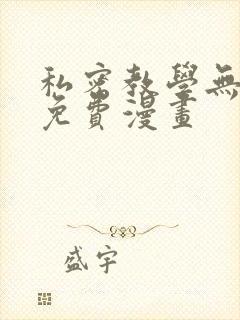 私密教學無
免費漫畫
盛宇